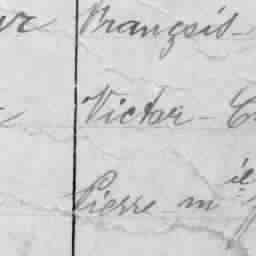 François
Victor - C
Pierre m